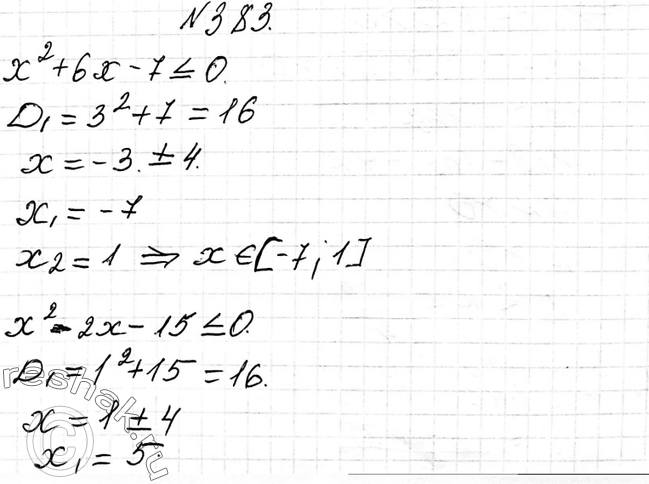 №383.
x²+6x-7≤0.
D₁=3²+7=16
x=-3.±4.
x₁=-7
x₂=1 ⇒ x∈[-7;1]
x²-2x-15≤0.
D₁=1²+15=16.
x=1±4
x₁=5
reshak.ru
©